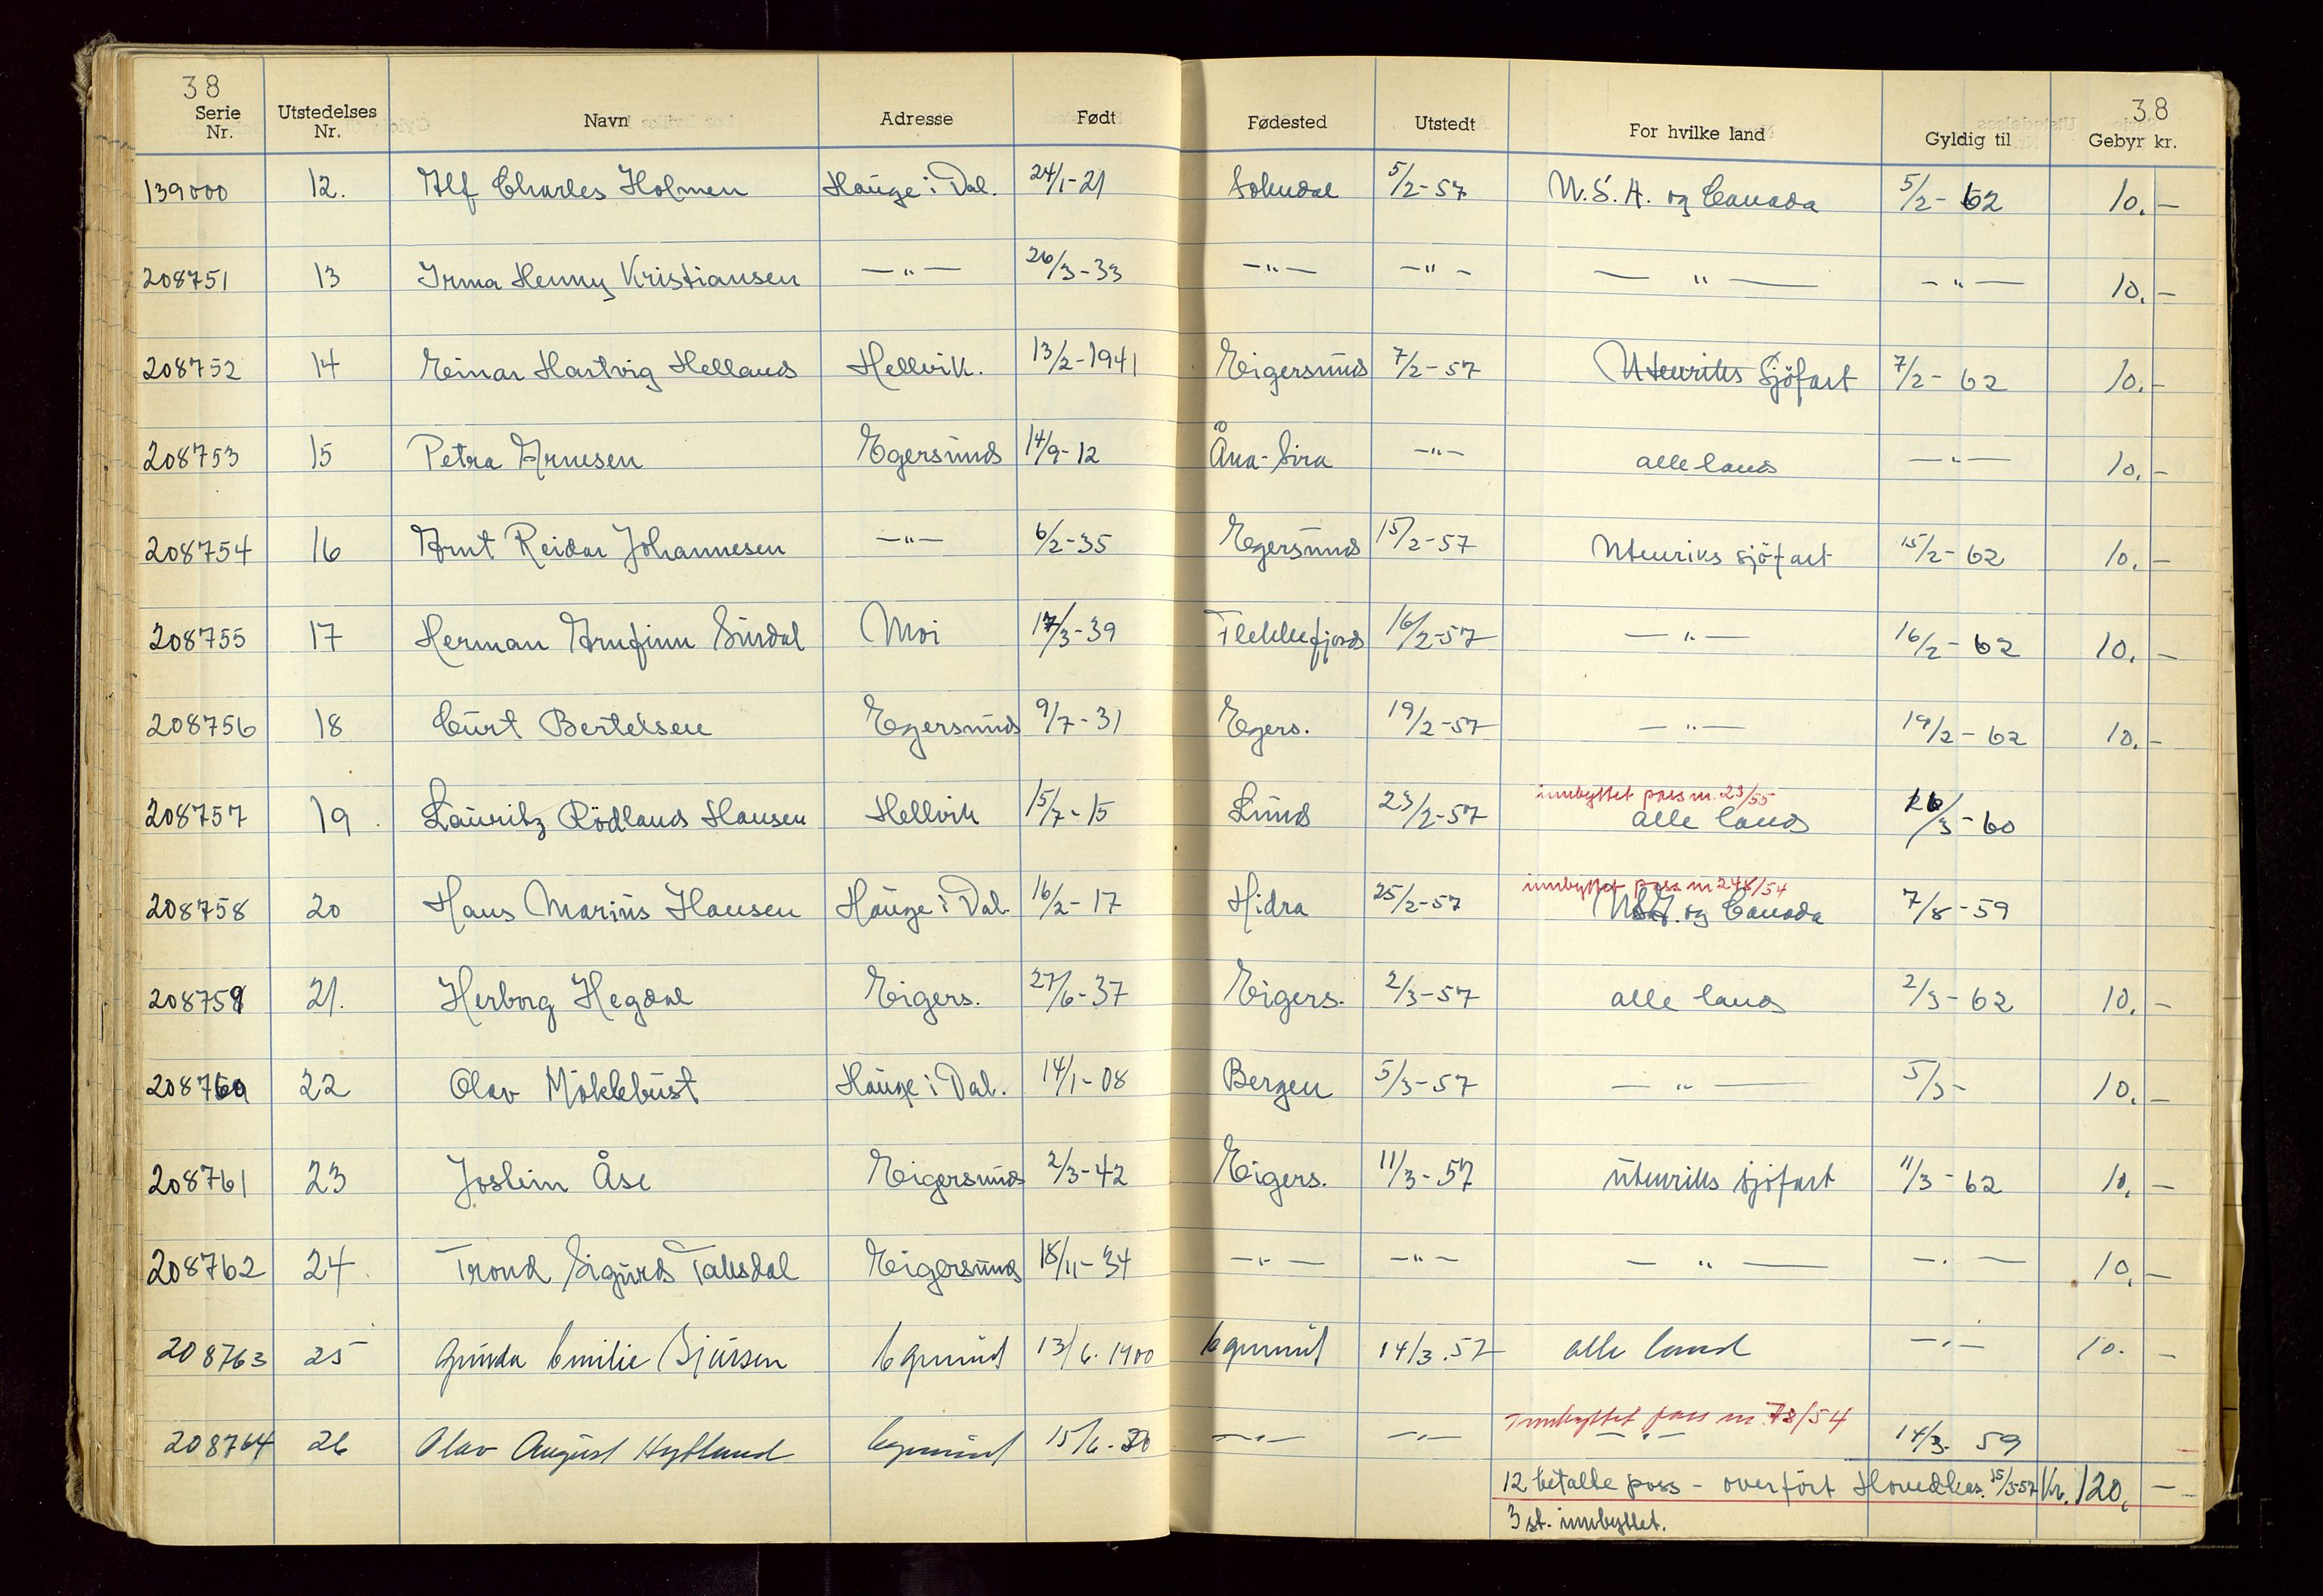 38 38
Serie Nr. Utstedelses Nr. Navn Adresse Født Fødested Utstedt For hvilke land Gyldig til Gebyr kr.
139000 12. Alf Charles Holmen Hauge i Dal. 24/1-21 Sokndal 5/2-57 U.S.A. og Canada 5/2-62 10.-
208751 13 Irma Henny Kristiansen -"- 26/3-33 -"- -"- -"- -"- 10,-
208752 14 Einar Hartvig Helland Hellvik. 13/2-1941 Eigersund 7/2-57 Utenriks Sjöfart 7/2-62 10.-
208753 15 Petra Arnesen Egersund 14/9-12 Åna-Sira -"- alle land -"- 10,-
208754 16 Arnt Reidar Johannesen -"- 6/2-35 Egersund 15/2-57 Utenriks sjöfart 15/2-62 10.-
208755 17 Herman Arnfinn Surdal Moi 17/3-39 Flekkefjord 16/2-57 -"- 16/2-62 10.-
208756 18 Curt Bertelsen Egersund 9/7-31 Egers. 19/2-57 -"- 19/2-62 10.-
innbyttet pass nr. 23/55
208757 19. Lauritz Rödland Hansen Hellvik 15/7-15 Lund 23/2-57 alle land 26/3-60
innbyttet pass nr 248/54
208758 20 Hans Marius Hansen Hauge i Dal. 16/2-17 Hidra 25/2-57 USA. og Canada 7/8-59
208759 21. Herborg Hegdal Eigers. 27/6-37 Eigers. 2/3-57 alle land 2/3-62 10.-
208760 22 Olav Möklebust Hauge i Dal. 14/1-08 Bergen 5/3-57 -"- 5/3- 10.-
208761 23 Jostein Åse Eigersund 2/3-42 Eigers. 11/3-57 utenriks sjöfart 11/3-62 10,-
208762 24. Trond Sigurd Taksdal Eigersund 18/11-34 -"- -"- -"- -"- 10,-
208763 25 Gunda Emilie Sjursen Egersund 13/6.1900 Egersund 14/3.57 alle land -"- 10.-
Innbyttet pass nr. 78/54
208764 26 Olav August Hytland Egersund 15/6-30 -"- -"- -"- 14/3-59 -
12 betalte pass - overfört Hovedkas. 15/3-57 Kr. 120,-
3 st. innbyttet.